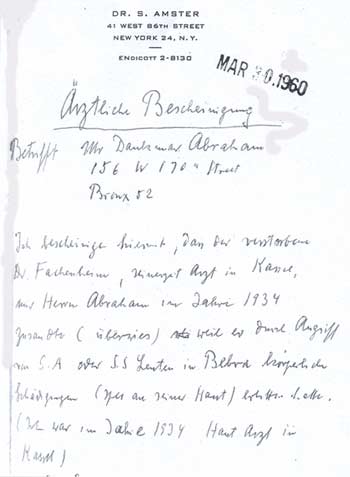 DR. S. AMSTER
41 WEST 86TH STREET
NEW YORK 24, N.Y.
ENDICOTT 2-8130
MAR 30 1960
Ärztliche Bescheinigung
Betrifft Mr Dankmar Abraham
156 W 170th Street
Bronx 52
Ich bescheinige hiermit, dass der verstorbene
Dr. Fackenheim, seinerzeit Arzt in Kassel,
mir Herrn Abraham im Jahre 1934
zusandte (überwies) weil er durch Angriff
von S.A oder SS Leuten in Bebra körperliche
Schädigungen (spez an seiner Haut) erlitten hatte.
(Ich war im Jahre 1934 Haut Arzt in
Kassel)